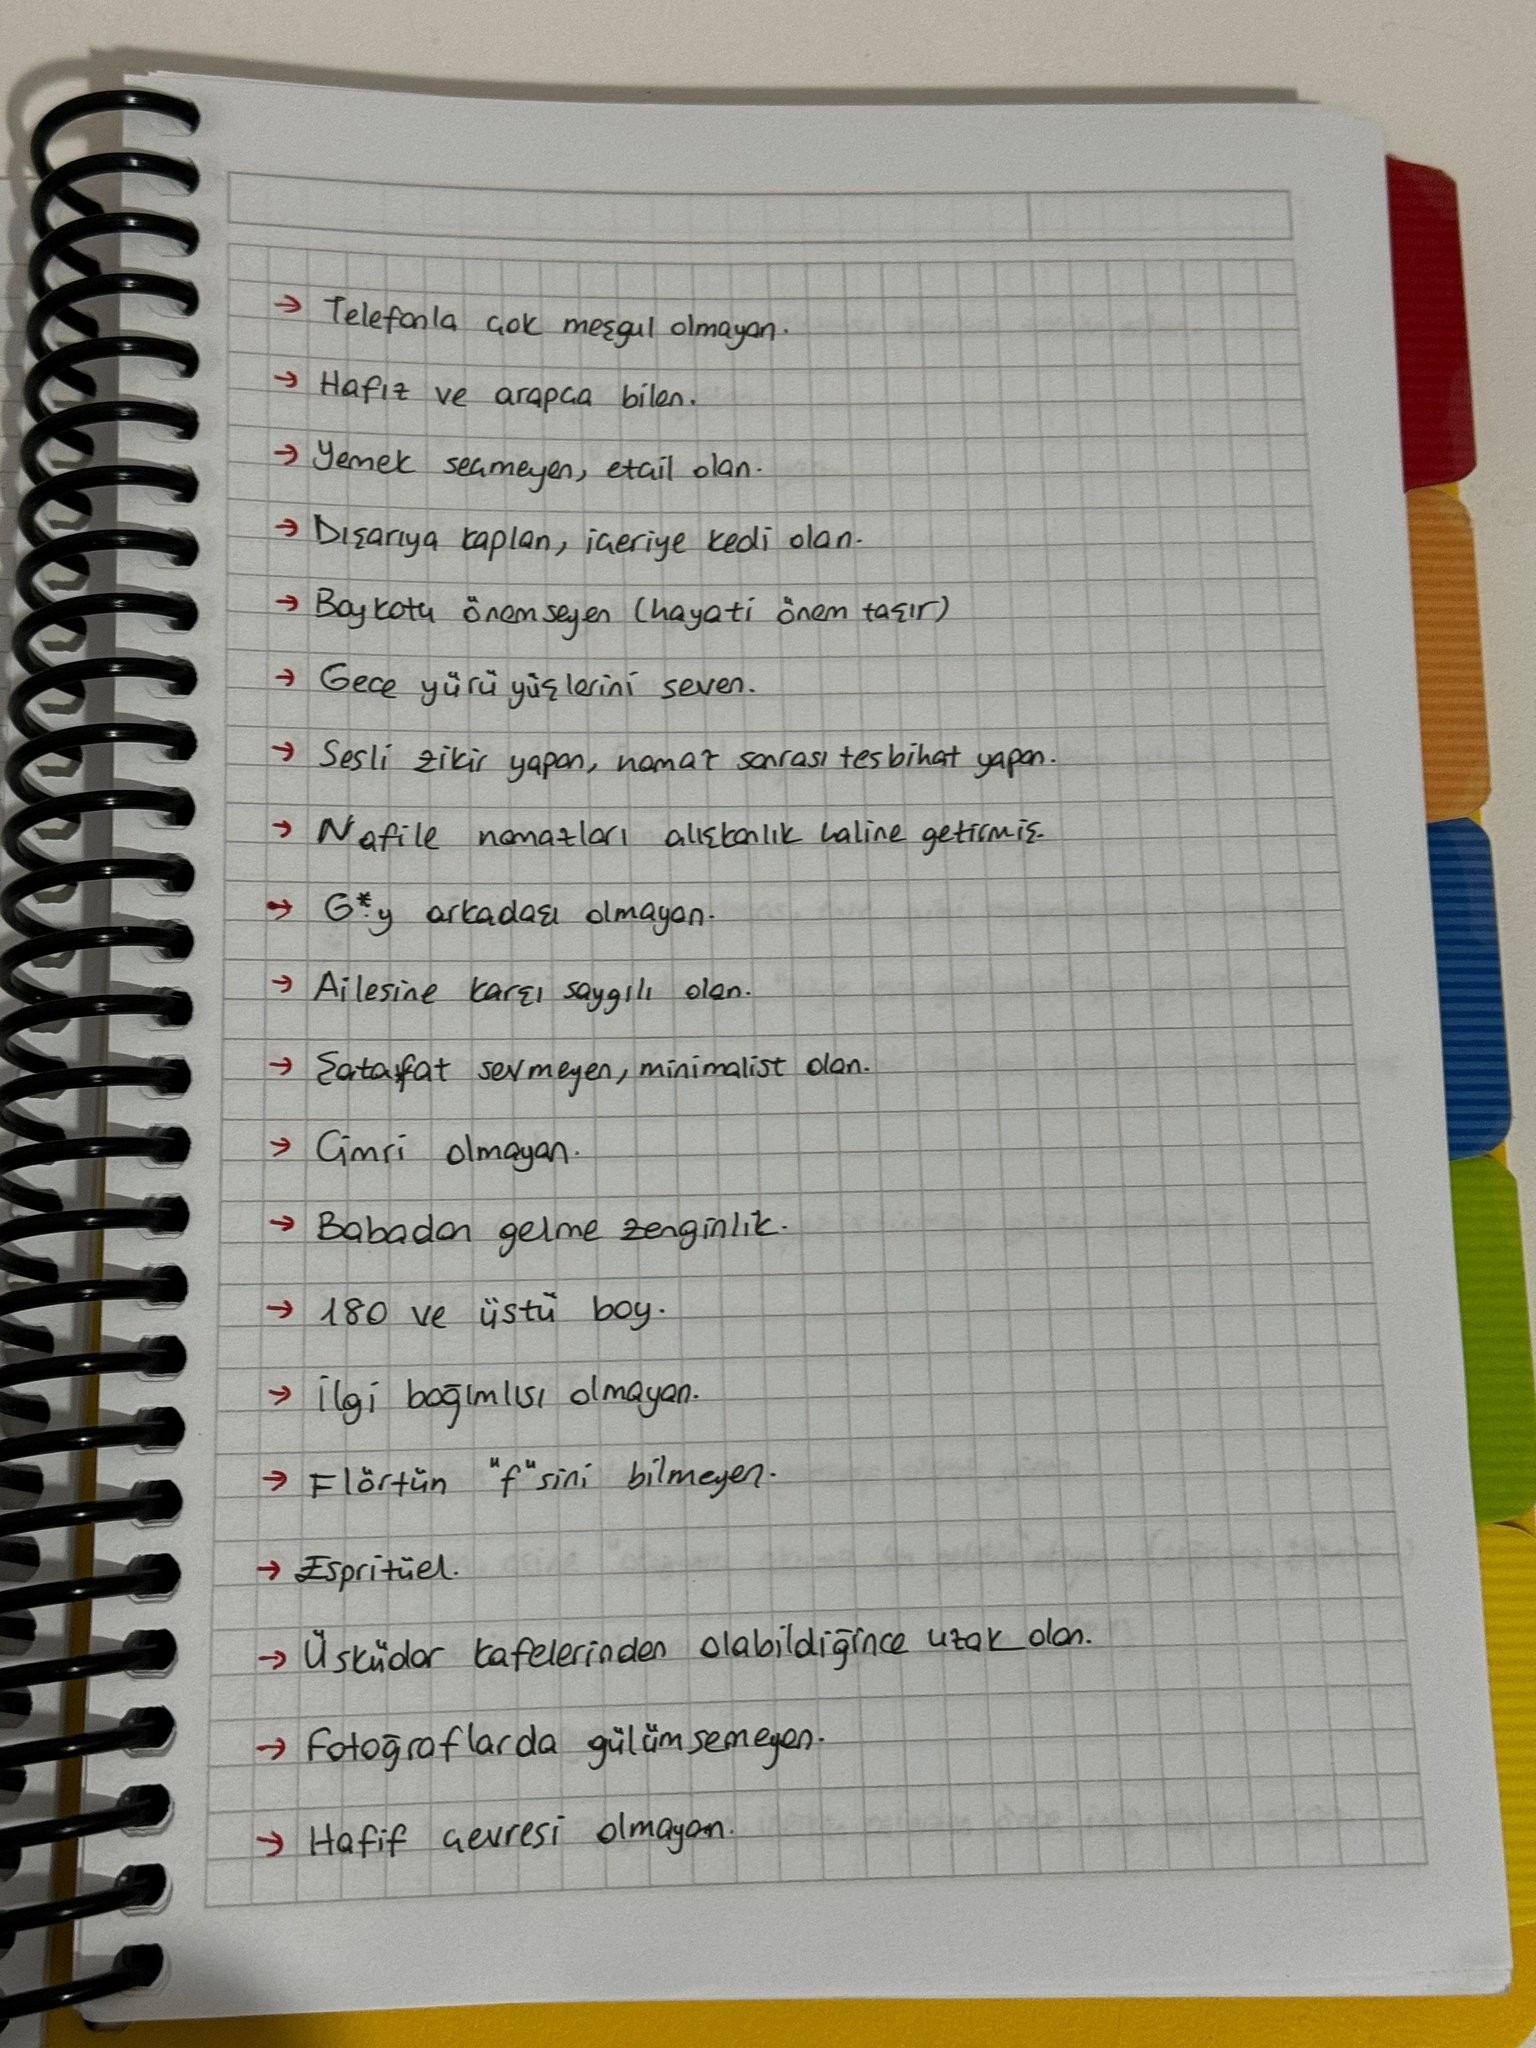 → Telefonla çok meşgul olmayan.
→ Hafız ve arapça bilen.
→ Yemek seçmeyen, etçil olan.
→ Dışarıya kaplan, içeriye kedi olan.
→ Boykotu önemseyen (hayati önem taşır)
→ Gece yürüyüşlerini seven.
→ Sesli zikir yapan, namaz sonrası tesbihat yapan.
→ Nafile namazları alışkanlık haline getirmiş.
→ G*y arkadaşı olmayan.
→ Ailesine karşı saygılı olan.
→ Şatafat sevmeyen, minimalist olan.
→ Cimri olmayan.
→ Babadan gelme zenginlik.
→ 180 ve üstü boy.
→ İlgi bağımlısı olmayan.
→ Flörtün "f"sini bilmeyen.
→ Espritüel.
→ Üsküdar kafelerinden olabildiğince uzak olan.
→ Fotoğraflarda gülümsemeyen.
→ Hafif çevresi olmayan.